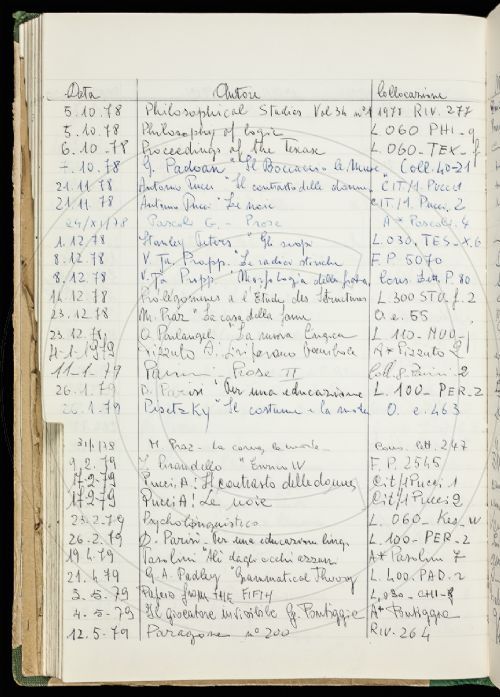 Data Autore Collocazione
5.10.78 Philosophical Studies Vol 34 n°1 1978 RIV. 277
5.10.78 Philosophy of logic L 060 PHI-g
6.10.78 Proceedings of the Texas L. 060-TEX-f
10.78 G. Padoan "Il Boccaccio le Muse Coll. 40-21
21.11.78 Antonio Pucci "Il contrasto delle donne CIT/1. Pucci 1
21.11.78 Antonio Pucci "Le noie CIT/1. Pucci. 2
24/XI/78 Pascoli G. - Prose A* Pascoli. 4
1.12.78 Stanley Peters " L. 030. TES-X.6
8.12.78 V. Ja. Propp. "Le radici storiche F.P 5070
8.12.78 V. Ja Propp "Morfologia della fiaba. Cons. Lett. P. 80
14.12.78 Prolégomènes a l'Etude des Structures L 300 STU. f. 2
23.12.78 M. Praz "La casa della fama O. e. 55
23.12.78 O. Parlangeli "La nuova L 110-NUO-1
4-1-1979 Pizzuto A. Si riparano bambole A* Pizzuto 2
11-1-79 Parini: Prose II
26.1.79 D. Parisi "Per una educazione L. 100-PER-2
26.1.79 "Il costume e la moda O. e. 463
31/1/78 M. Praz - La carne, la morte - Cons. lett. 247
9.2.79 L. Pirandello "Enrico IV F. P. 2545
17.2.79 Pucci A: Il contrasto delle donne Cit/1 Pucci 1
17.2.79 Pucci A: Le noie Cit/1 Pucci 2
23.2.79 Psycholinguistics L. 060-Kes. w
26.2.79 D. Parisi - Per una educazione ling. L. 100-PER-2
19.4.79 Pasolini "Alì dagli occhi azzurri A* Pasolini 7
21.4.79 G.A. Padley "Grammatical Theory L. 400. PAD. 2
3.5.79 Papers from THE FIFTH L. 030-CHI-
4.5.79 Il giocatore invisibile G. Pontiggia A* Pontiggia
12.5.79 Paragone n° 200 RIV. 264